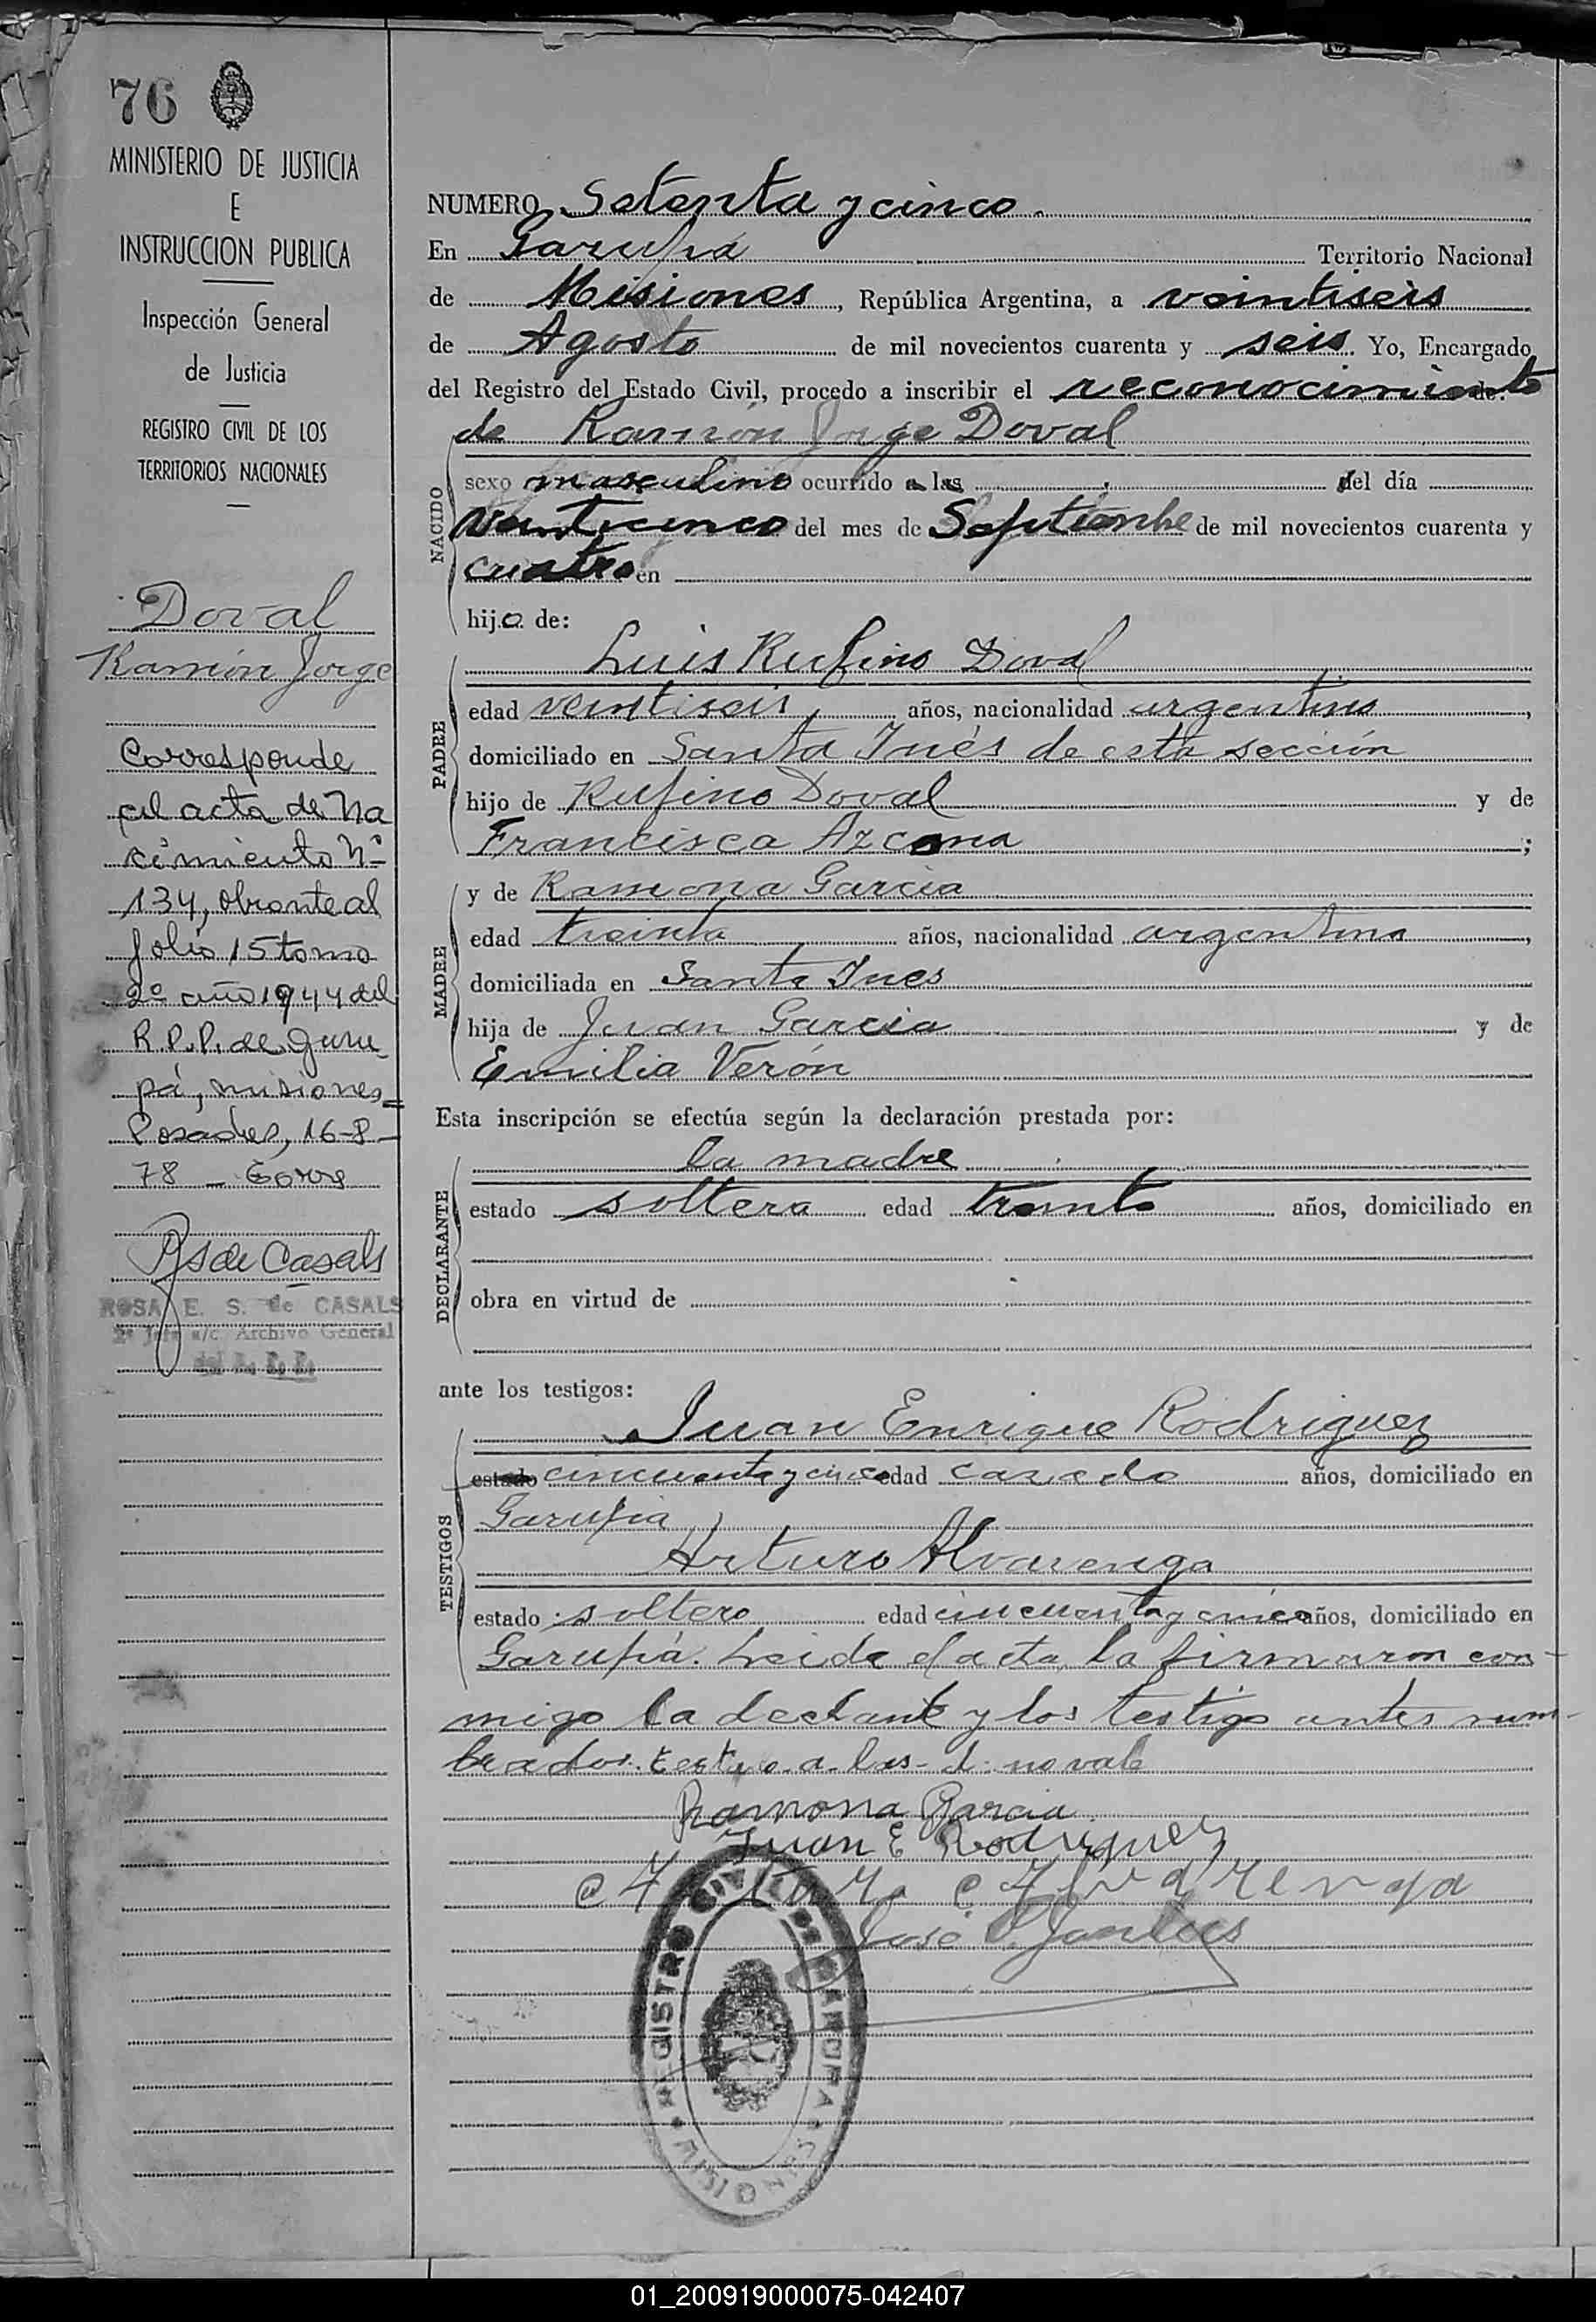 76
MINISTERIO DE JUSTICIA
E
INSTRUCCION PUBLICA
Inspección General
de Justicia
REGISTRO CIVIL DE LOS
TERRITORIOS NACIONALES
Doval
Ramón Jorge
Corresponde
al acta de Na
cimiento Nº
134, obrante al
folio 15 tomo
2º año 1944 del
R.P.P. de Garu
pá, misiones=
Posadas, 16-8-
78 -
RS de Casals
ROSA E. S. de CASALS
2º Jefe a/c. Archivo General
del R. P. P.
NUMERO Setenta y cinco.
En Garupá Territorio Nacional
de Misiones, República Argentina, a veintiseis
de Agosto de mil novecientos cuarenta y seis. Yo, Encargado
del Registro del Estado Civil, procedo a inscribir el reconocimiento de
de Ramón Jorge Doval
NACIDO
sexo masculino ocurrido a las del día
veinticinco del mes de Septiembre de mil novecientos cuarenta y
cuatro en
hijo de:
PADRE
Luis Rufino Doval
edad veintiseis años, nacionalidad argentino,
domiciliado en Santa Inés de esta sección
hijo de Rufino Doval y de
Francisca Azcona;
MADRE
y de Ramona Garcia
edad treinta años, nacionalidad argentina,
domiciliada en Santa Ines
hija de Juan Garcia y de
Emilia Verón
Esta inscripción se efectúa según la declaración prestada por:
DECLARANTE
la madre
estado soltera edad treinta años, domiciliado en
obra en virtud de
ante los testigos:
TESTIGOS
Juan Enrique Rodriguez
estado cincuenta y cinco edad casado años, domiciliado en
Garupá
Arturo Alvarenga
estado soltero edad cincuenta y cinco años, domiciliado en
Garupá. Leida el acta, la firmaron con-
migo la declante y los testigo antes nom-
brados. testdo-a-las-d-no vale
Ramona Garcia
Juan E Rodriguez
Arturo Alvarenga
José
REGISTRO CIVIL DE GARUPA
MISIONES
01_200919000075-042407